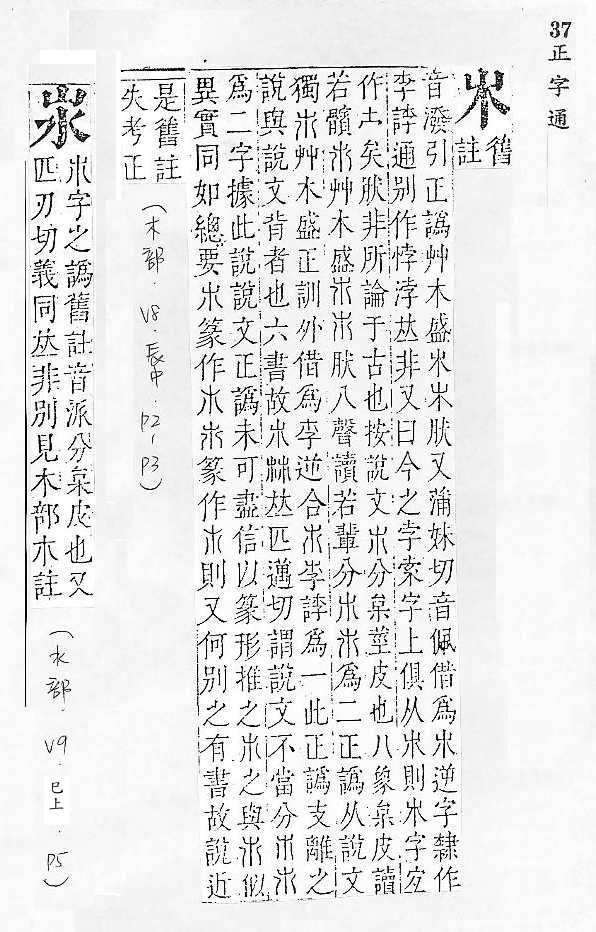 37
正字通
𣎵
舊
註
音潑引正譌艸木盛𣎵𣎵肰又蒲妹切音佩借爲𣎵逆字隸作
孛誖通別作悖浡𠀤非又曰今之字索字上俱从𣎵則𣎵字宐
作㞢矣肰非所論于古也按說文𣎳分枲莖皮也八象枲皮讀
若髕𣎵艸木盛𣎵𣎵肰八聲讀若輩分𣎳𣎵爲二正譌从說文
獨𣎵艸木盛正訓外借爲孛逆合𣎵孛誖爲一此正譌支離之
說與說文背者也六書故𣎳𣏟𠀤匹邁切謂說文不當分𣎳𣎵
爲二字據此說說文正譌未可盡信以篆形推之𣎳之與𣎵似
異實同如總要𣎳篆作𣎳𣎵篆作𣎵則又何別之有書故說近
是舊註
失考正
(木部．V8．辰中．P2-P3)
𣎳字之譌舊註音派分枲皮也又
匹刃切義同𠀤非別見木部𣎳註
(水部．V9．巳上．P5)